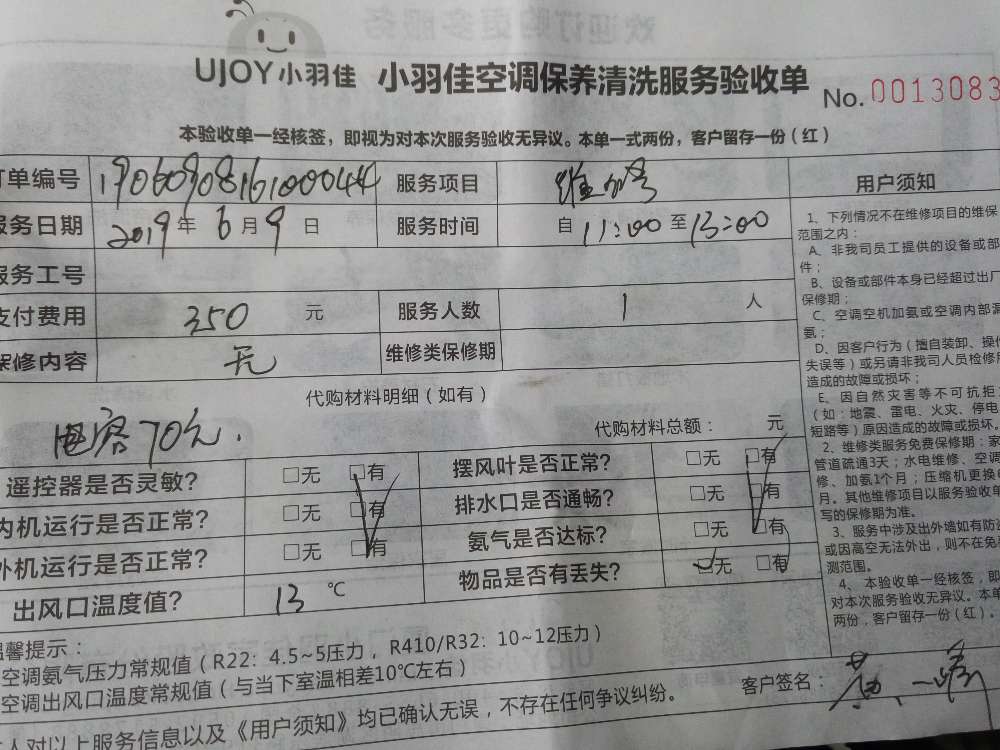 UJOY小羽佳 小羽佳空调保养清洗服务验收单 No. 0013083
本验收单一经核签，即视为对本次服务验收无异议。本单一式两份，客户留存一份（红）
订单编号 19060908161000044 服务项目
服务日期 2019 年 6 月 9 日 服务时间 自 11:00 至 13:00
服务工号
支付费用 350 元 服务人数 1 人
保修内容 无 维修类保修期
代购材料明细（如有）
电容70元.
代购材料总额： 元
遥控器是否灵敏? □无 □有 摆风叶是否正常? □无 □有
内机运行是否正常? □无 □有 排水口是否通畅? □无 □有
外机运行是否正常? □无 □有 氨气是否达标? □无 □有
出风口温度值? 13 ℃ 物品是否有丢失? □无 □有
温馨提示：
空调氨气压力常规值（R22：4.5~5压力，R410/R32：10~12压力）
空调出风口温度常规值（与当下室温相差10℃左右）
本人对以上服务信息以及《用户须知》均已确认无误，不存在任何争议纠纷。
客户签名：
用户须知
1、下列情况不在维修项目的维保
范围之内：
A、非我司员工提供的设备或部
件；
B、设备或部件本身已经超过出厂
保修期；
C、空调空机加氨或空调内部漏
氨；
D、因客户行为（擅自装卸、操作
失误等）或另请非我司人员检修所
造成的故障或损坏；
E、因自然灾害等不可抗拒
（如：地震、雷电、火灾、停电
短路等）原因造成的故障或损坏。
2、维修类服务免费保修期：家
管道疏通3天；水电维修、空调
修、加氨1个月；压缩机更换
月。其他维修项目以服务验收单
写的保修期为准。
3、服务中涉及出外墙如有防盗
或因高空无法外出，则不在免
测范围。
4、本验收单一经核签，即
对本次服务验收无异议。本单
两份，客户留存一份（红）。